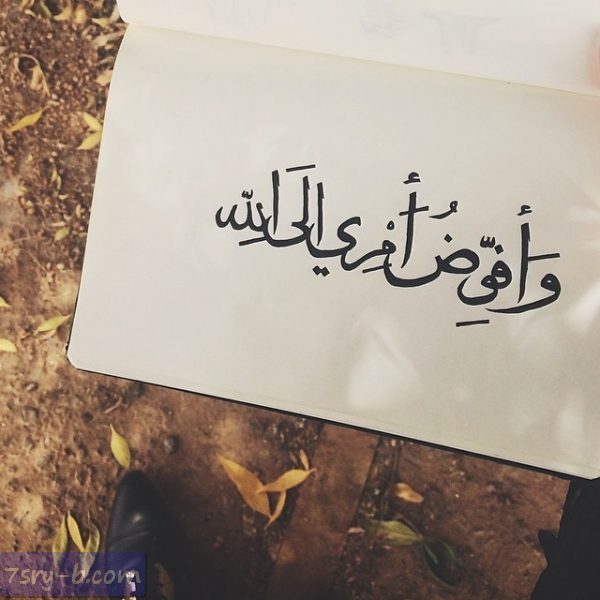 وَأُفَوِّضُ أَمْرِي إلَى اللهِ
7sry-b.com